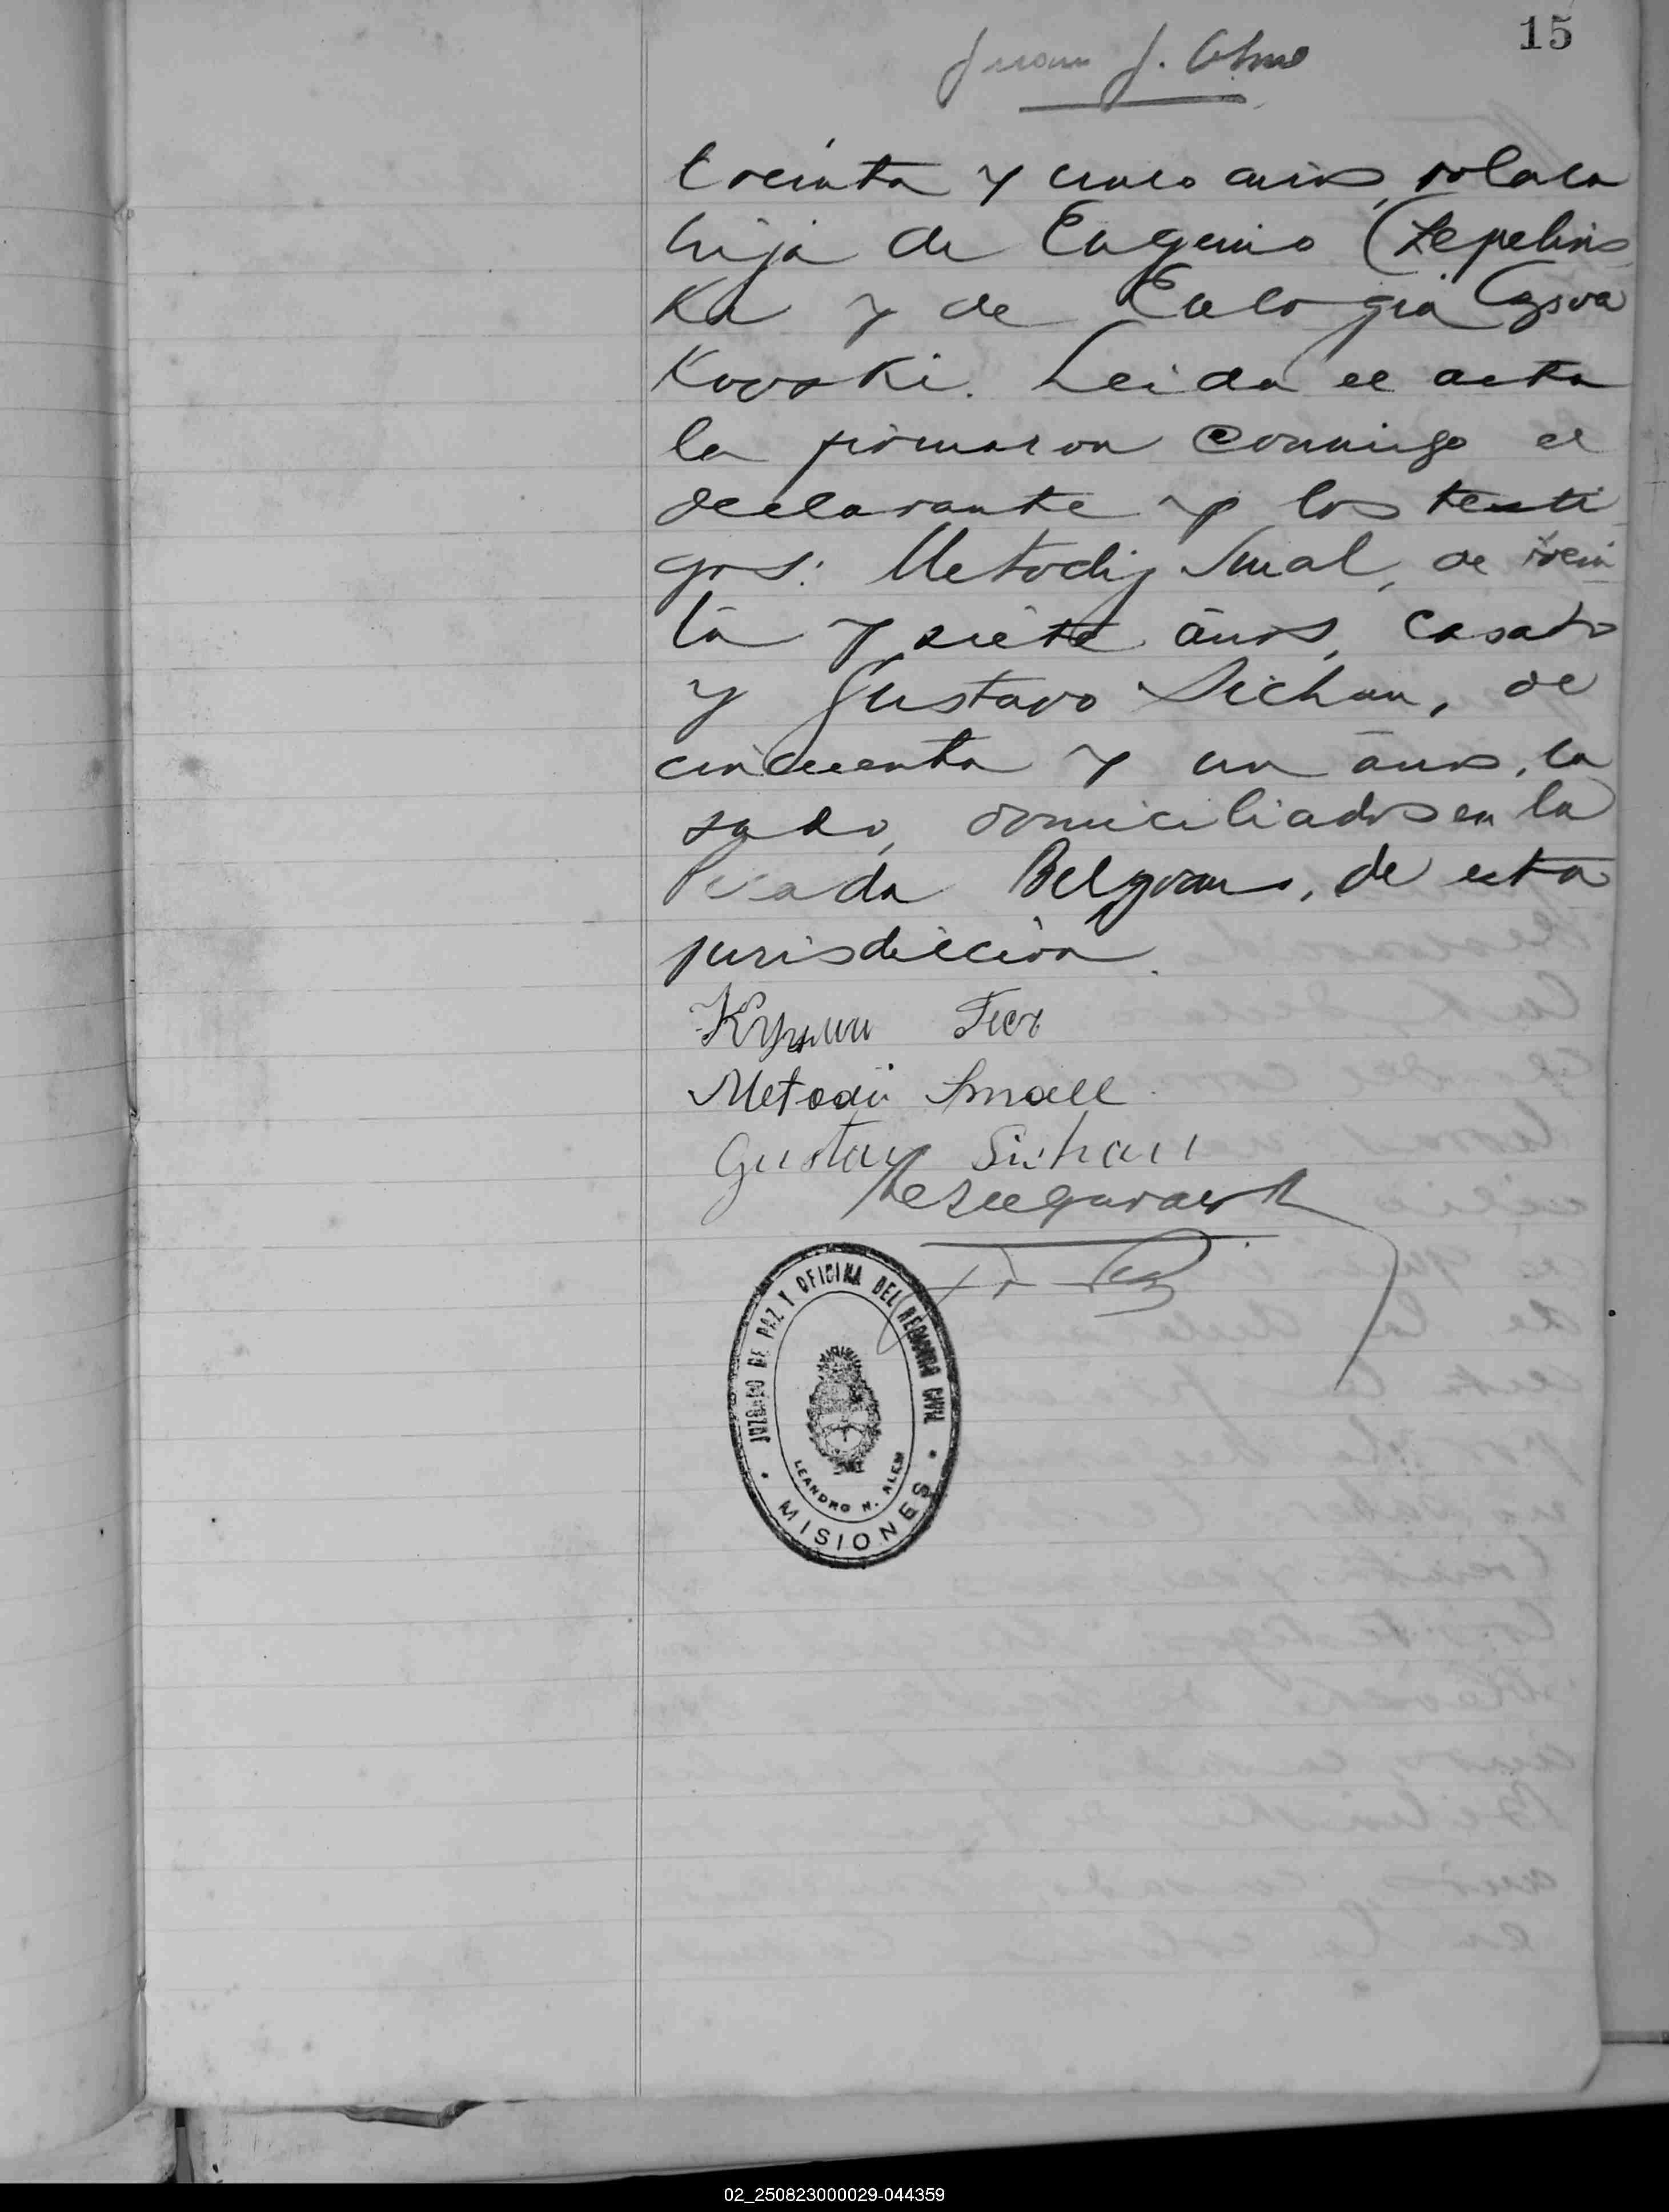 15
Juan J.
treinta y cinco años, polaca
hija de Eugenio Czepelins
ka y de Eulogia
Kovski. Leida el acta
la firmaron conmigo el
declarante y los testi
gos: Metodij Smal, de trein
ta y siete años, casado
y Gustavo Sichau, de
cincuenta y un años, ca
sado, domiciliados en la
Picada Belgrano, de esta
jurisdiccion.
Metodii Small
Gustav Sichau
JUZGADO DE PAZ Y OFICINA DEL REGISTRO CIVIL
LEANDRO N. ALEM
MISIONES
02_250823000029-044359